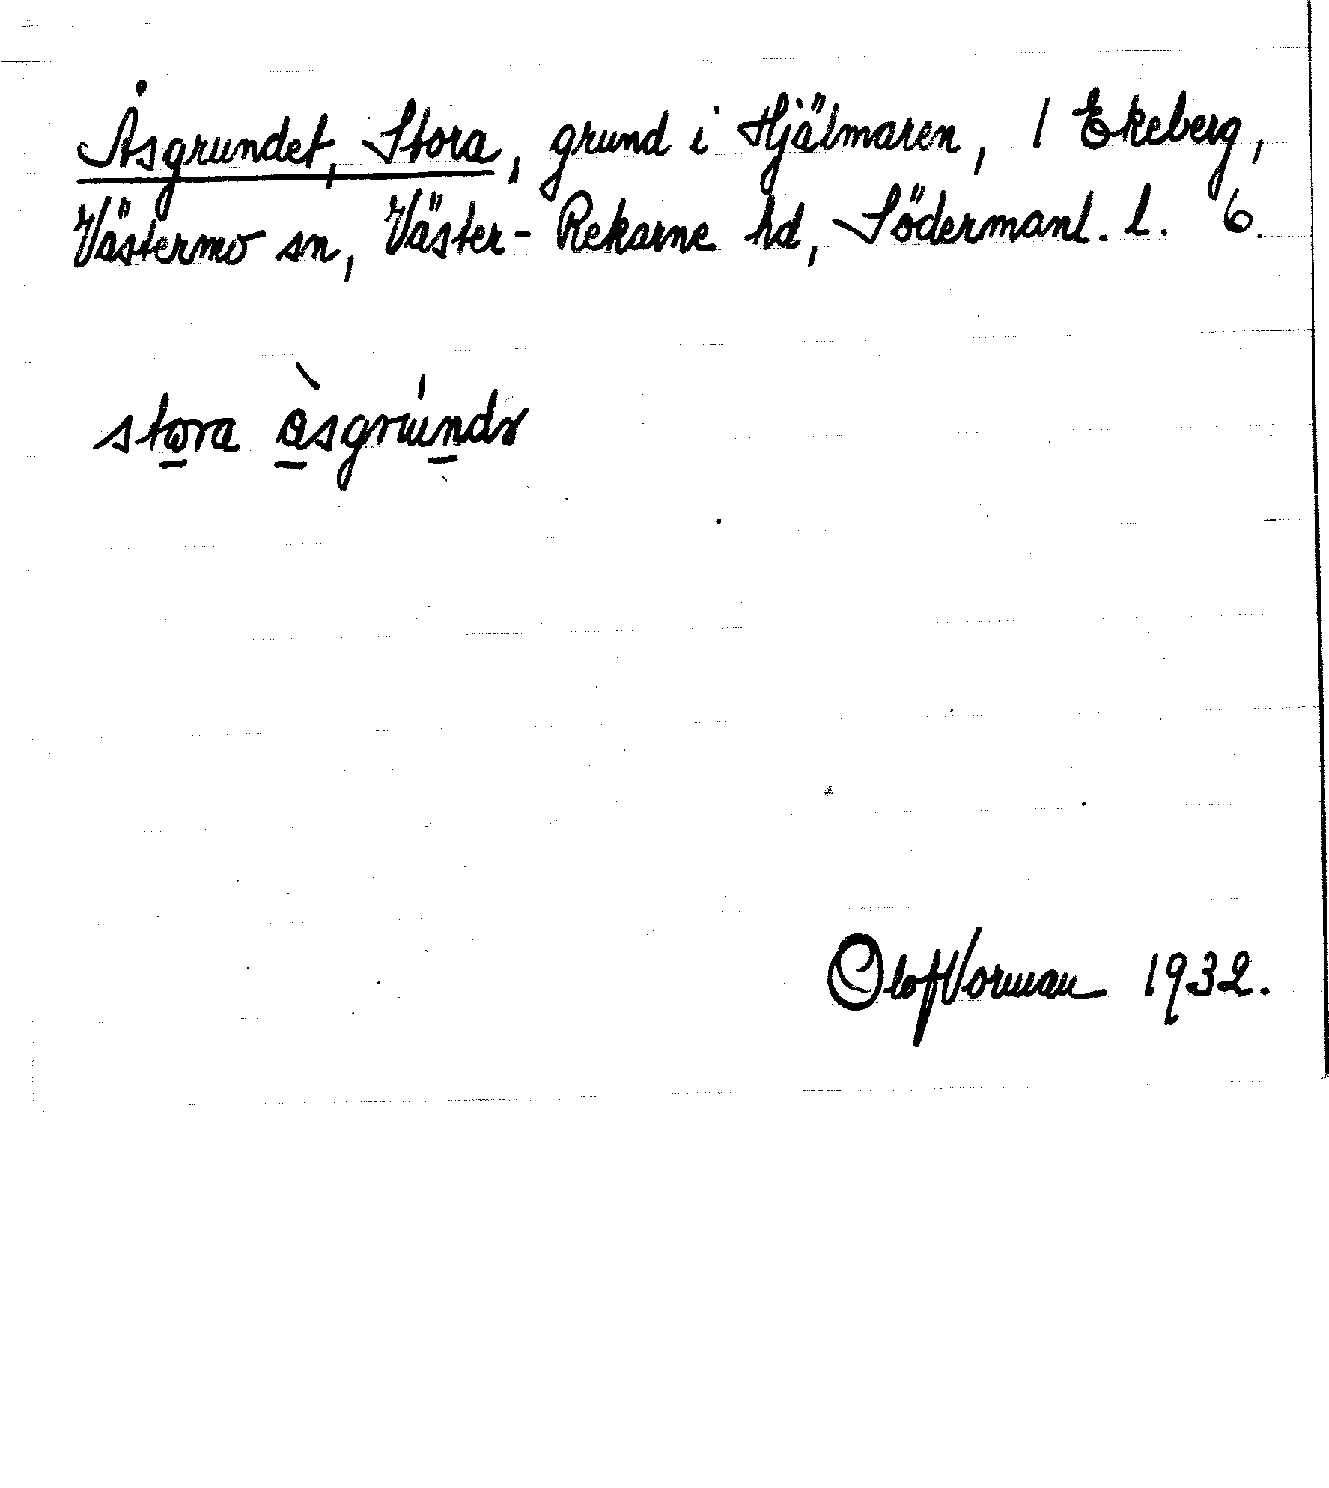 Åsgrundet, Stora, grund i Hjälmaren, 1 Ekeberg,
Västermo sn, Väster-Rekarne hd, Södermanl. l. 6.
stora
Olof Vorman 1932.